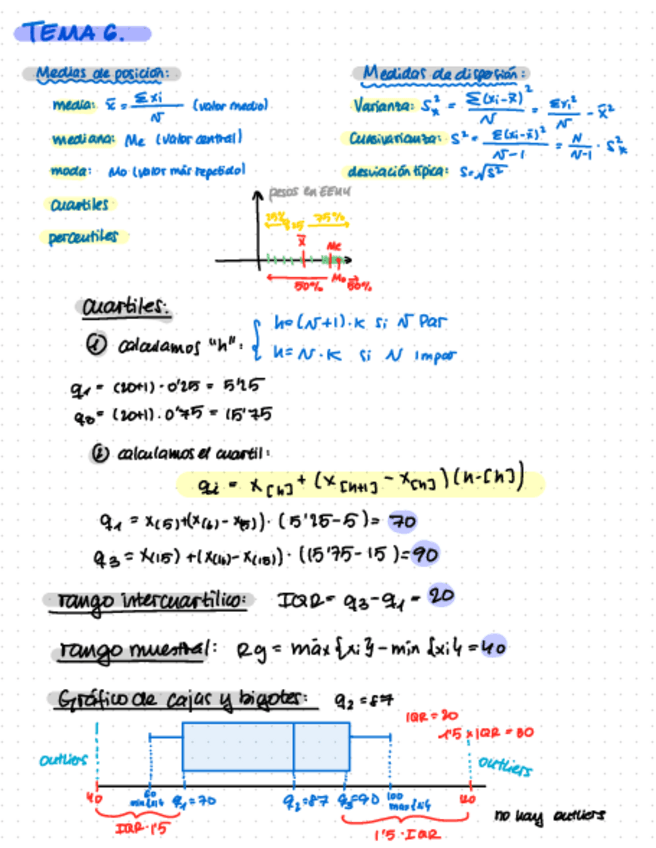 TEMA 6.
Medias de posición:
media: x̄ = Σxi / N (valor medio)
mediana: Me (valor central)
moda: Mo (valor más repetido)
cuartiles
percentiles
Medidas de dispersión:
Varianza: S²* = Σ(xi-x̄)² / N = Σxi² / N - x̄²
Cuasivarianza: S² = Σ(xi-x̄)² / N-1 = N / N-1 · S²*
desviación típica: S=√S²
pesos en EEUU
25% 75%
x̄ Me
50% Mo 50%
cuartiles:
① calculamos "h": { h=(N+1)·K si N Par
h=N·K si N impar
q1 = (20+1)·0'25 = 5'25
q3 = (20+1)·0'75 = 15'75
② calculamos el cuartil:
qi = X[h] + (X[h+1] - X[h])(h-[h])
q1 = X(5)+(X(6)-X(5))·(5'25-5)= 70
q3 = X(15)+(X(16)-X(15))·(15'75-15)=90
rango intercuartílico: IQR= q3-q1 = 20
rango muestral: Rg = máx{xi}-min{xi}=40
Gráfico de cajas y bigotes: q2=87
IQR=20
1'5 × IQR = 30
outliers
outliers
40 60 q1=70 q2=87 q3=90 100
min{xi} max{xi}
IQR·1'5
1'5·IQR
no hay outliers